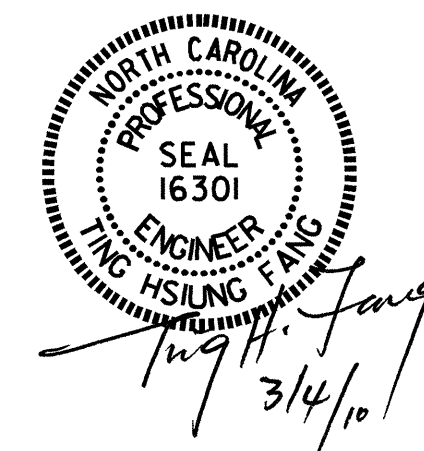 NORTH CAROLINA
PROFESSIONAL
SEAL
16301
ENGINEER
TING HSIUNG FANG
Ting H. Fang
3/4/10